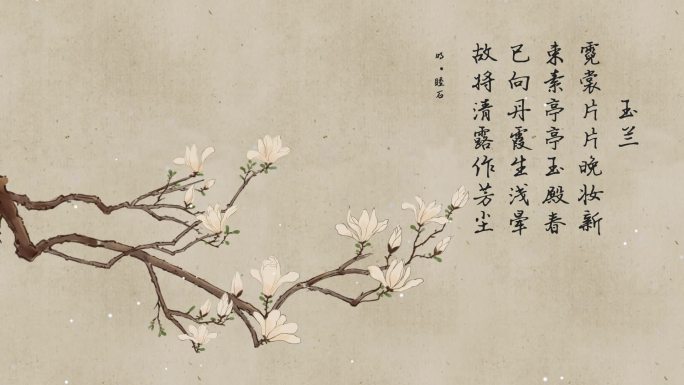 玉兰
霓裳片片晚妆新
束素亭亭玉殿春
已向丹霞生浅晕
故将清露作芳尘
明·睦石